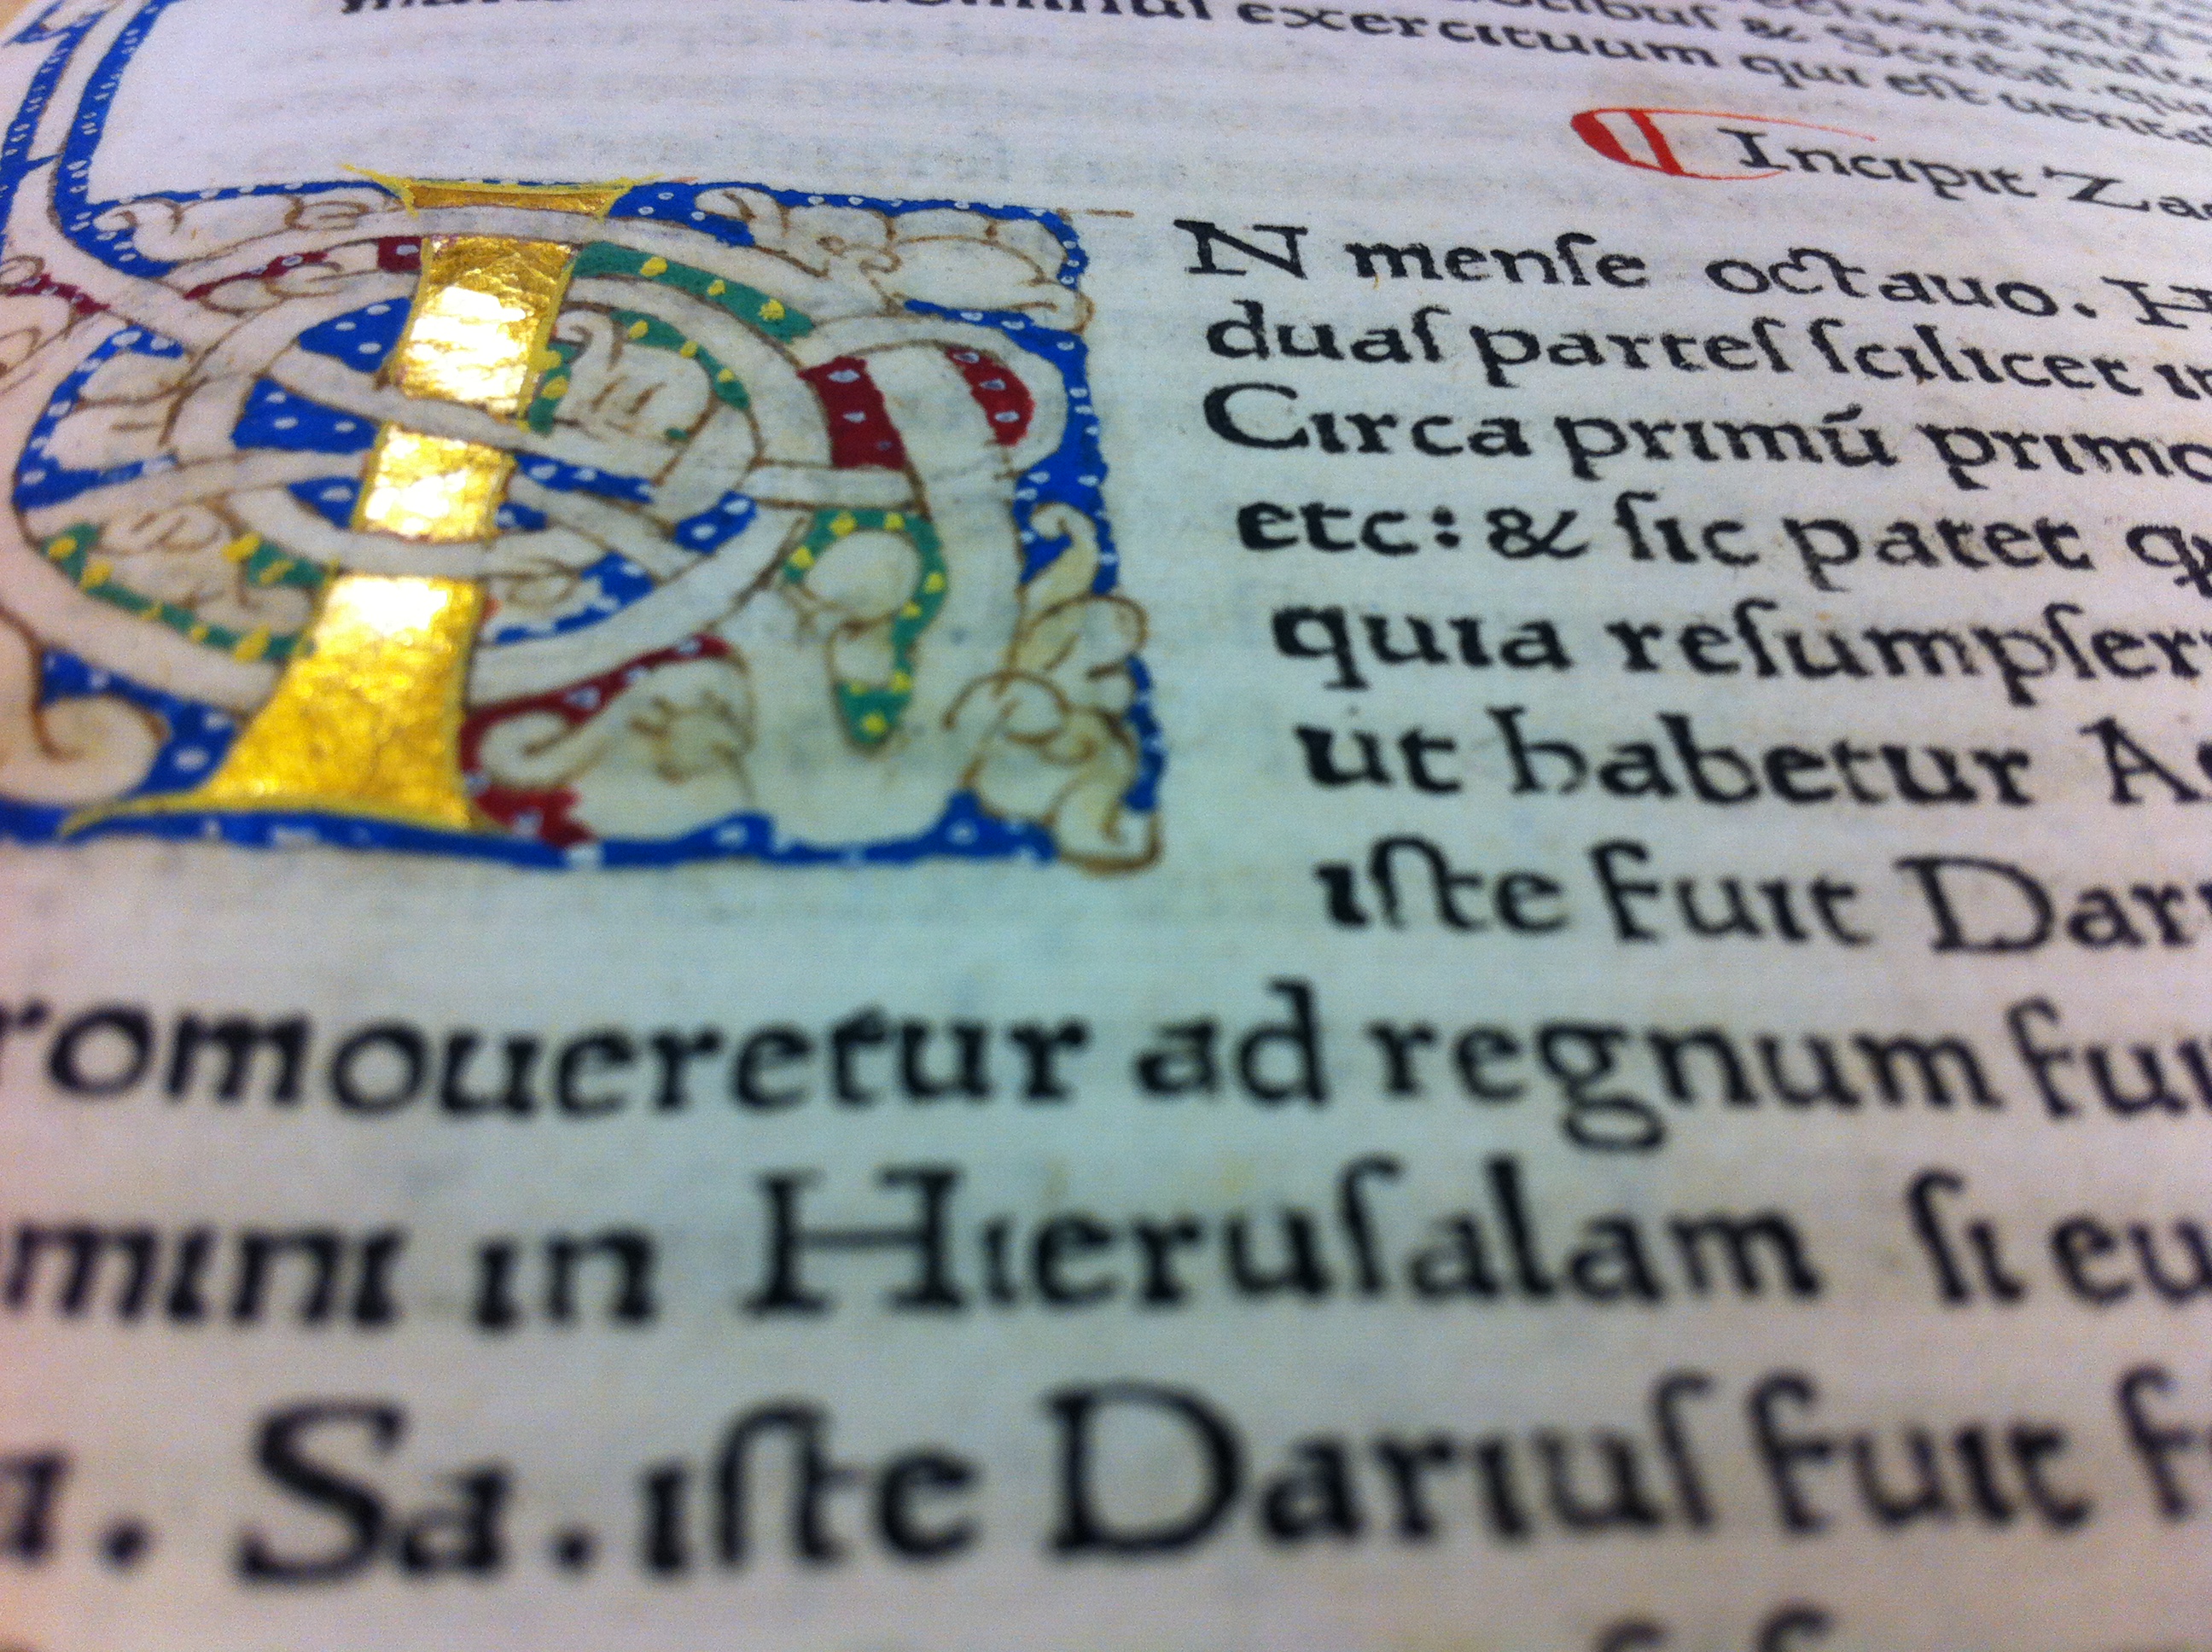 exercituum qui eſt
Incipit Zac
IN menſe octauo. H
duaſ parteſ ſcilicet in
Circa primū primo
etc: & ſic patet
quia reſumpſer
ut habetur
iſte fuit Dar
romoueretur ad regnum fu
mini in Hieruſalam ſi eu
. Sa. iſte Dariuſ fuit f